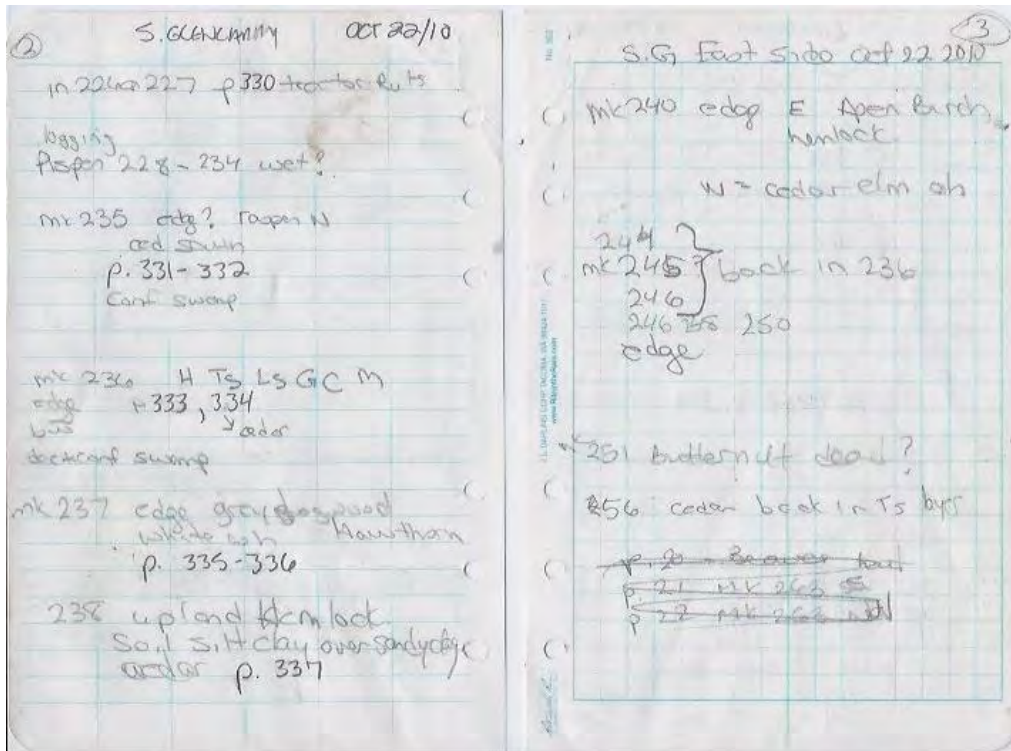 2
S. GLENCAMMY OCT 22/10
in 224 227 p330 tractor Ruts
logging
Aspen 228 - 234 wet?
mk 235 edg? N
ced
p. 331-332
Conf swamp
mk 236 H Ts LS G C M
edge 333, 334
cedar
swamp
mk 237 edge grey dogwood
white ash Hawthorn
p. 335-336
238 upland Hemlock
Soil Silt clay over sandy clay
cedar p. 337
3
S.G East Side Oct 22 2010
mk 240 edge E Apen Burch
hemlock
W = cedar elm ah
244
mk 245 back in 236
246
246 250
edge
251 Butternutt dead?
256 cedar back in Ts
p. 20 - Beaver
p. 21 MK 263
p. 22 MK 263